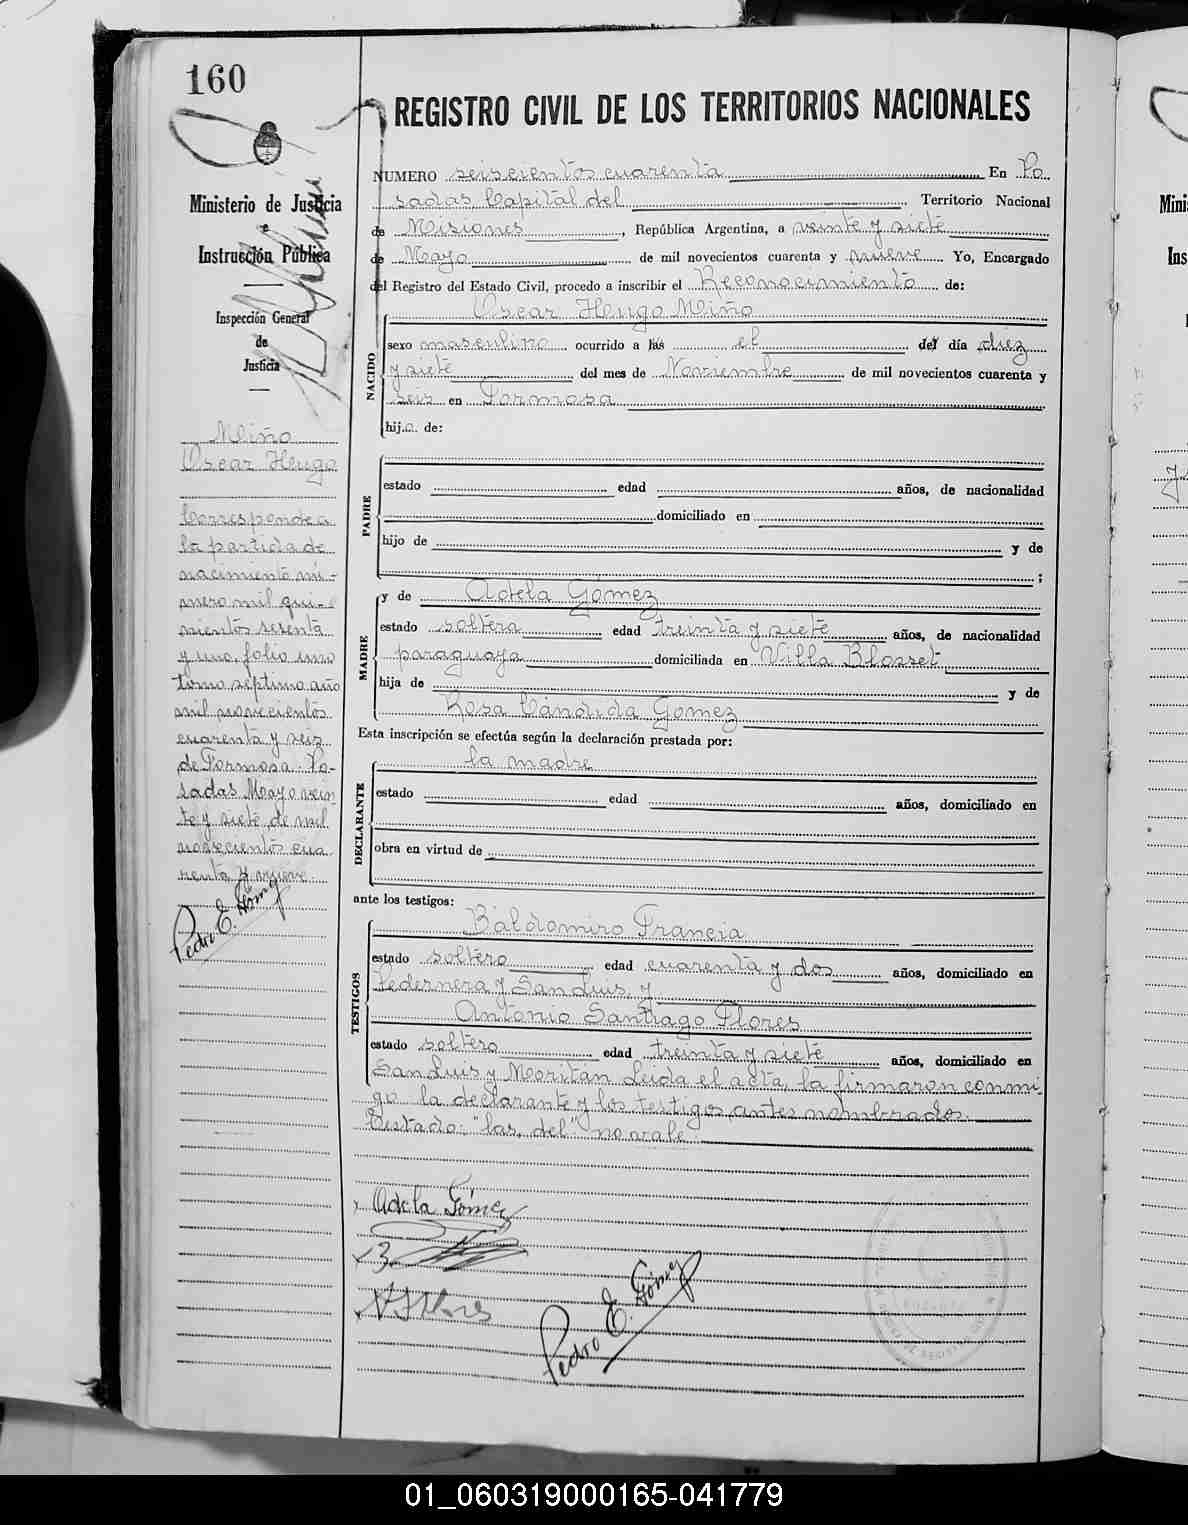 160
REGISTRO CIVIL DE LOS TERRITORIOS NACIONALES
Ministerio de Justicia
e
Instrucción Pública
Inspección General
de
Justicia
Miño
Oscar Hugo
Corresponde a
la partida de
nacimiento nú-
mero mil qui-
nientos sesenta
y uno, folio uno
tomo septimo año
mil novecientos
cuarenta y seis
de Formosa. Po-
sadas Mayo vein
te y siete de mil
novecientos cua
renta y nueve.
Pedro E. Gómez
NUMERO seiscientos cuarenta En Po
sadas Capital del Territorio Nacional
de Misiones, República Argentina, a veinte y siete
de Mayo de mil novecientos cuarenta y nueve Yo, Encargado
del Registro del Estado Civil, procedo a inscribir el Reconocimiento de:
NACIDO
Oscar Hugo Miño
sexo masculino ocurrido a las el del día diez
y siete del mes de Noviembre de mil novecientos cuarenta y
seis en Formosa
hijo de:
PADRE
estado edad años, de nacionalidad
domiciliado en
hijo de y de
;
MADRE
y de Adela Gómez
estado soltera edad treinta y siete años, de nacionalidad
paraguaya domiciliada en Villa Blosset
hija de y de
Rosa Cándida Gomez
Esta inscripción se efectúa según la declaración prestada por:
DECLARANTE
la madre
estado edad años, domiciliado en
obra en virtud de
ante los testigos:
TESTIGOS
Baldomiro Francia
estado soltero edad cuarenta y dos años, domiciliado en
Pedernera y San Luis, y
Antonio Santiago Flores
estado soltero edad treinta y siete años, domiciliado en
San Luis y Moritan Leida el acta, la firmaron conmi-
go la declarante y los testigos antes nombrados.
Testado: "las, del" no vale.
Adela Gómez
A S Flores
Pedro E. Gómez
01_060319000165-041779